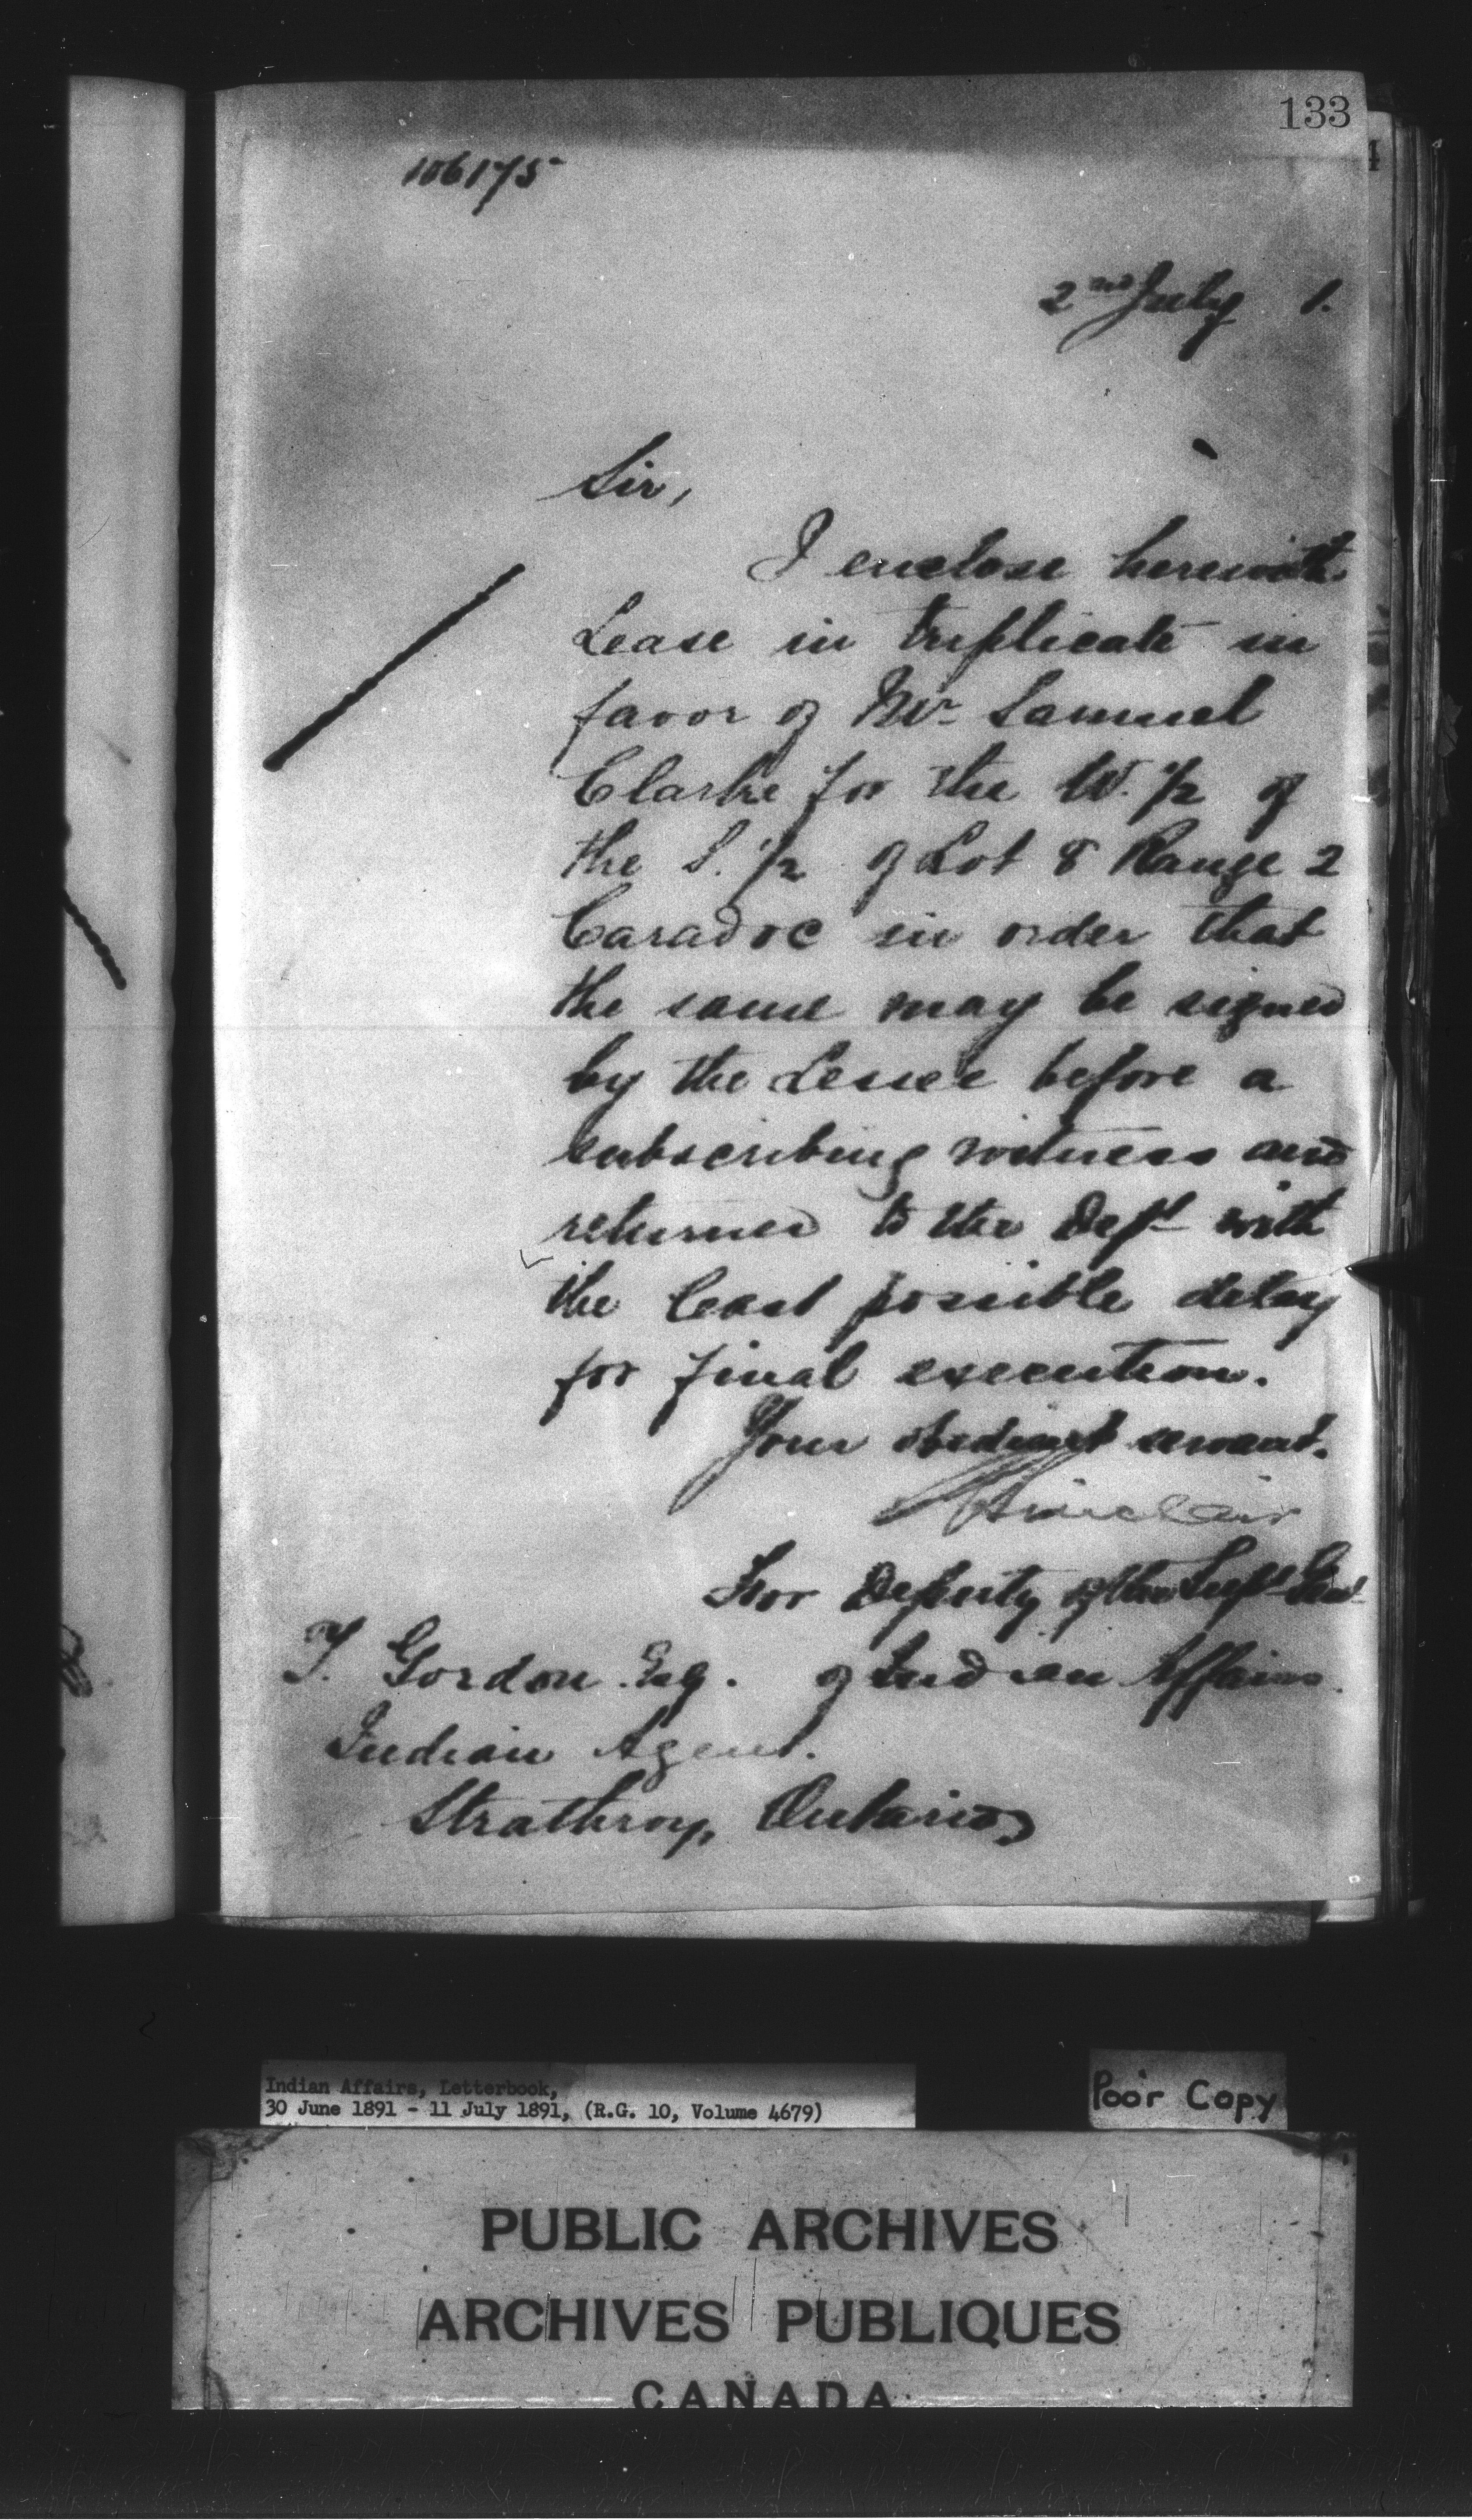 133
106175
2nd July 1.
Sir,
I enclose herewith
Lease in triplicate in
favor of Mr. Samuel
Clarke for the W. 1/2 of
the S. 1/2 of Lot 8 Range 2
Caradoc in order that
the same may be signed
by the Lessee before a
subscribing witness and
returned to the Dept with
the least possible delay
for final execution.
Your obedient servant.
Sinclair
For Deputy of the Supt Genl
T. Gordon Esq. of Indian Affairs.
Indian Agent.
Strathroy, Ontario
Indian Affairs, Letterbook,
30 June 1891 - 11 July 1891, (R.G. 10, Volume 4679)
Poor Copy
PUBLIC ARCHIVES
ARCHIVES PUBLIQUES
CANADA